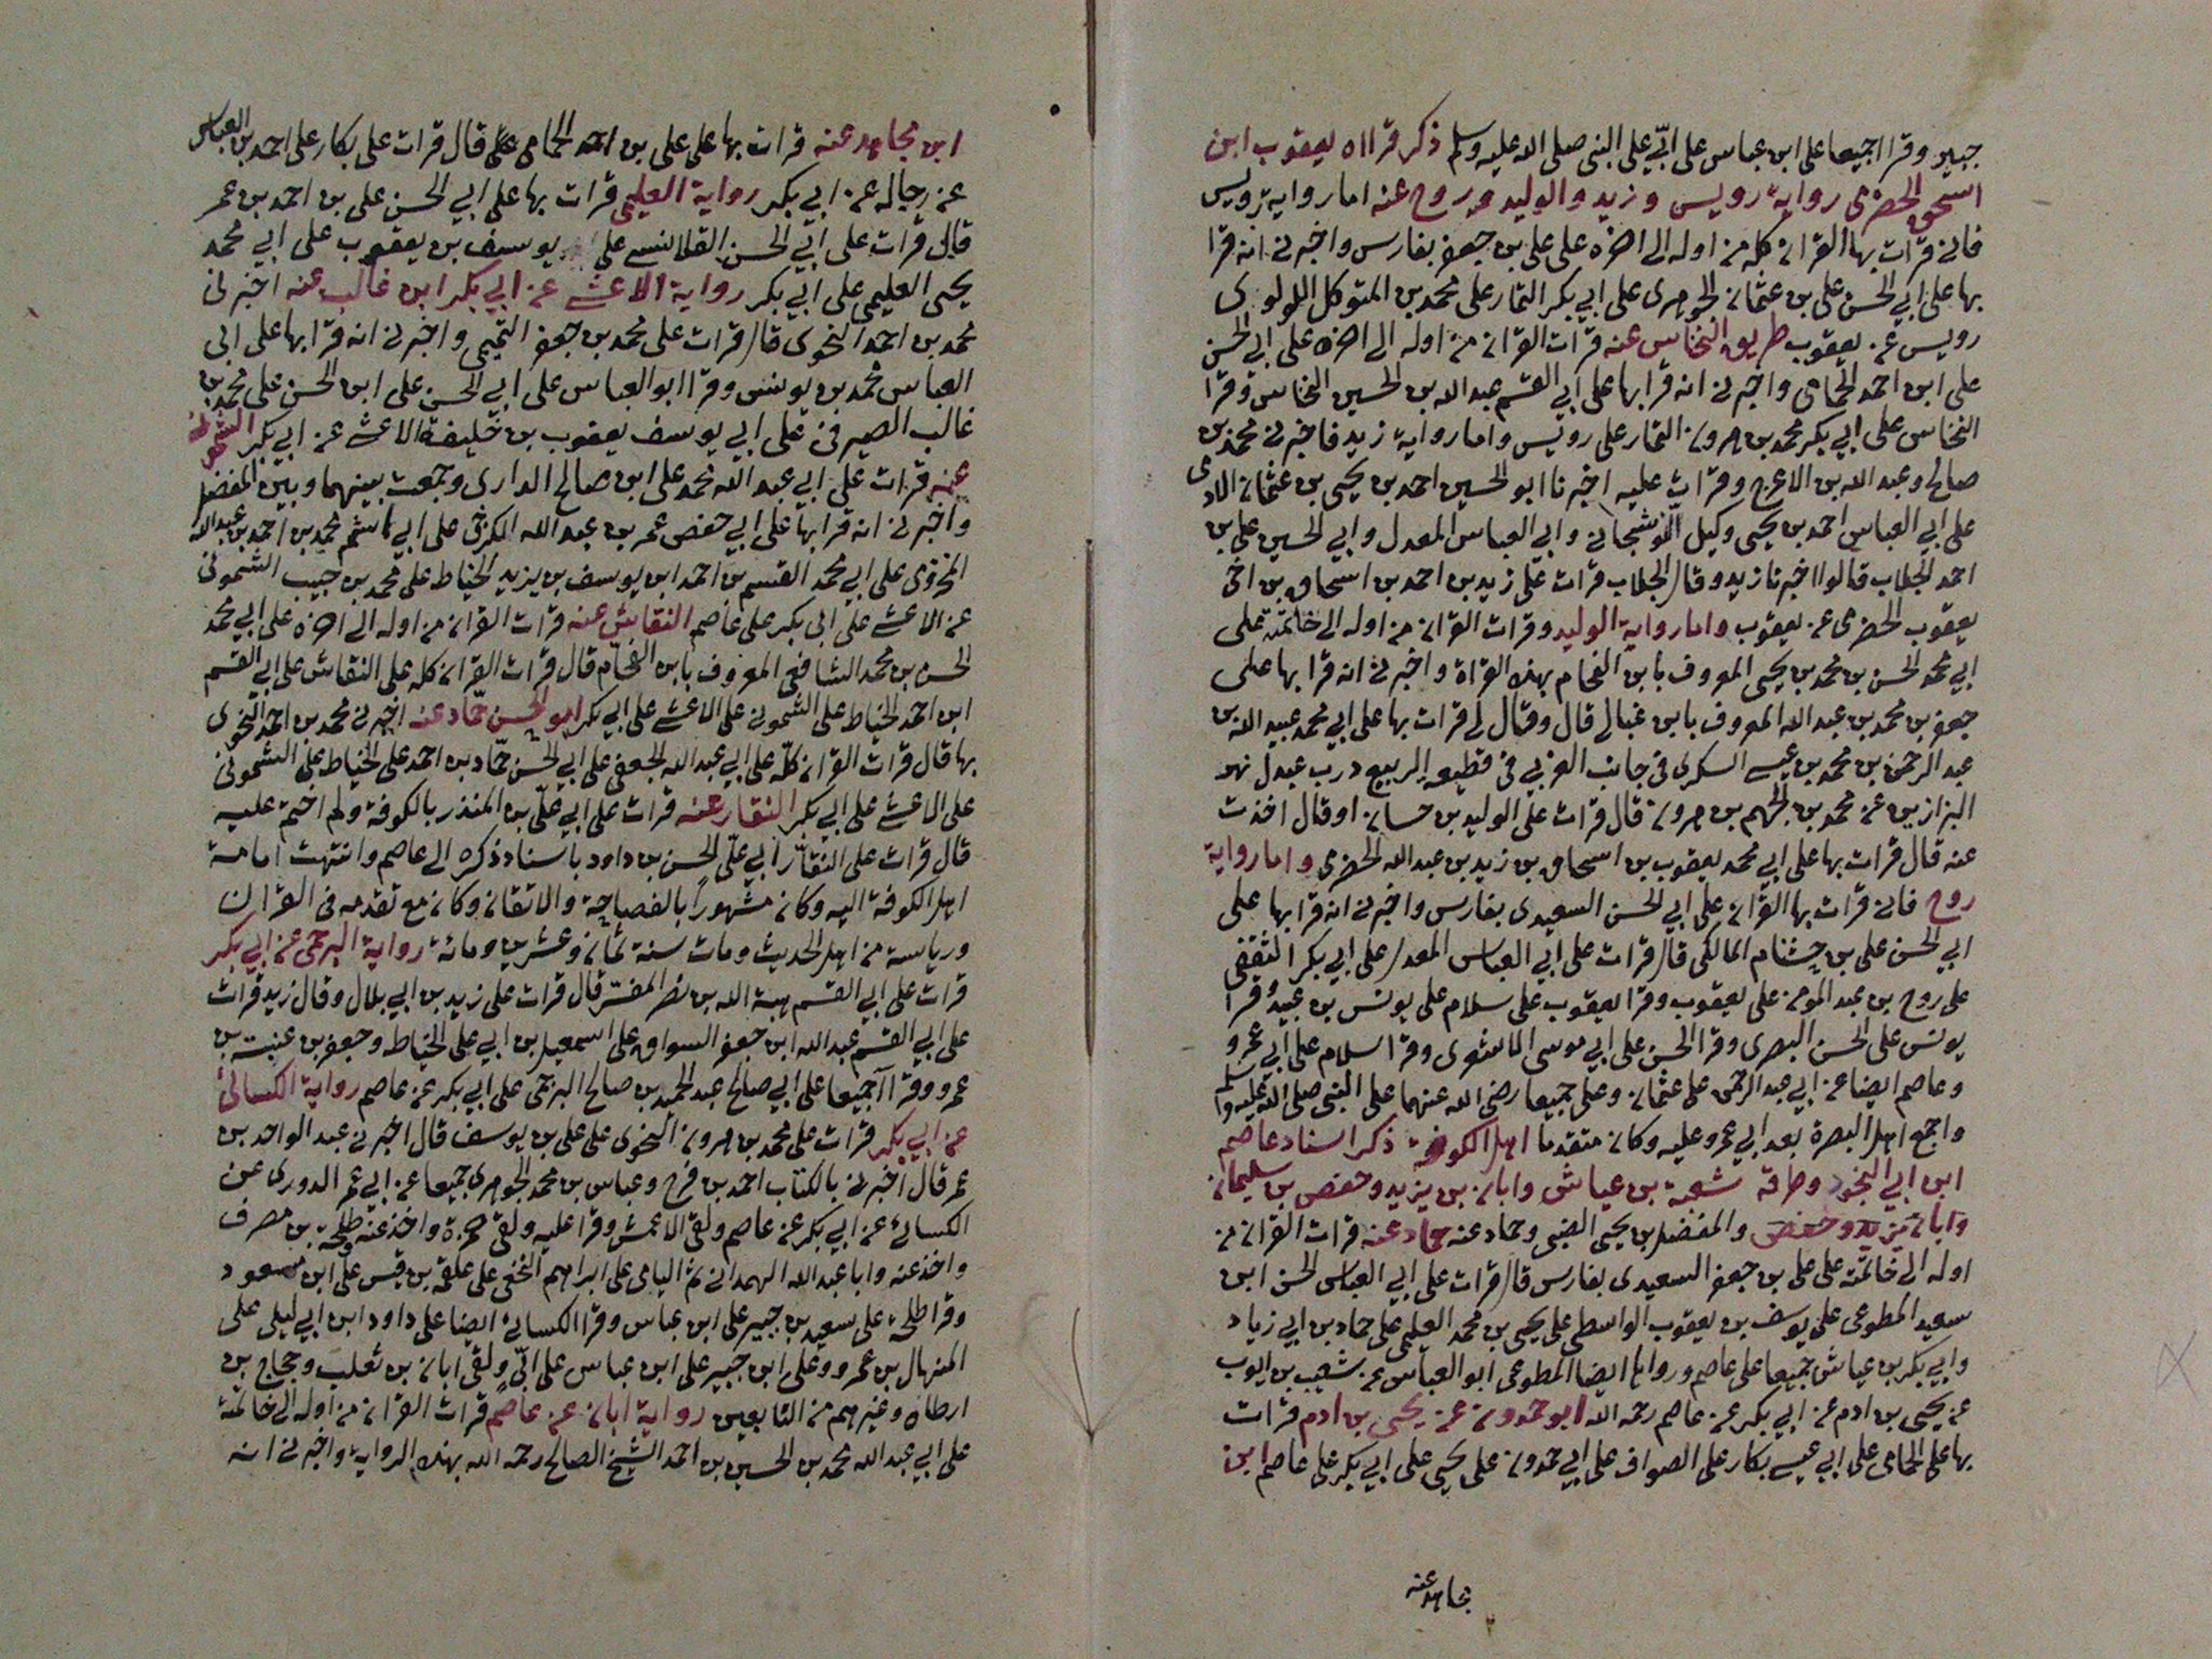 جبير وقرا اجميعا على ابن عباس على ابيّ على النبي صلى الله عليه وسلم ذكر قراه يعقوب ابن
اسحق الحضرمى رواية رويس وزيد والوليد وروح عنه اما رواية رويس
فانى قرات بها القران كله من اوله الى اخره على على بن جعفر بفارس واخبرنى انه قرا
بها على ابي الحسن على بن عثمان الجوهرى على ابي بكر التمار على محمد بن المتوكل اللولوى
رويس عن يعقوب طريق النخاس عنه قرات القران من اوله الى اخره على ابي الحسن
على ابن احمد الحمامى واخبرنى انه قرا بها على ابي القسم عبد الله بن الحسين النخاس وقرا
النخاس على ابي بكر محمد بن هرون التمار على رويس واما رواية زيد فاخبرنى محمد بن
صالح وعبد الله بن الاعرج وقرات عليه اخبرنا ابو الحسين احمد بن يحيى بن عثمان الادمى
على ابي العباس احمد بن يحيى وكيل النوشجانى وابي العباس المعدل وابي الحسين على بن
احمد الجلاب قالوا اخبرنا زيد وقال الجلاب قرات على زيد بن احمد بن اسحاق بن اخى
يعقوب الحضرمى عن يعقوب واما رواية الوليد وقرات القران من اوله الى خاتمته على
ابي محمد الحسن بن محمد بن يحيى المعروف بابن الفحام بهذه القراة واخبرنى انه قرا بها على
جعفر بن محمد بن عبد الله المعروف بابن غبالى قال وقال لى قرات بها على ابي محمد عبيد الله بن
عبد الرحمن بن محمد بن عيسى السكرى فى جانب الغربي فى قطيعه الربيع درب عبدل نهر
البزازين عن محمد بن الجهم بن هرون قال قرات على الوليد بن حسان او قال اخذت
عنه قال قرات بها على ابي محمد يعقوب بن اسحاق بن زيد بن عبد الله الحضرمى واما رواية
روح فانى قرات بها القران على ابي الحسن السعيدى بفارس واخبرنى انه قرا بها على
ابي الحسن على بن خشنام المالكى قال قرات على ابي العباس المعدل على ابي بكر الثقفى
على روح بن عبد المومن على يعقوب وقرا يعقوب على سلام على يونس بن عبيد وقرا
يونس على الحسن البصرى وقرا الحسن على ابي موسى الاشعرى وقرا سلام على ابي عمرو
وعاصم ايضا عن ابي عبد الرحمن على عثمان وعلى جميعا رضى الله عنهما على النبى صلى الله عليه وسلم
واجمع اهل البصرة بعد ابي عمرو عليه وكان متقدما اهل الكوفة ذكر اسناد عاصم
ابن ابي النجود وطرقه شعبة بن عياش وابان بن يزيد وحفص بن سليمان
وابان يزيد وحفص والمفضل بن يحيى الضبى وحماد عنه حماد عنه قرات القران من
اوله الى خاتمته على على بن جعفر السعيدى بفارس قال قرات على ابي العباس الحسن ابن
سعيد المطوعى على يوسف بن يعقوب الواسطى على يحيى بن محمد العليمى على حماد بن ابي زياد
وابي بكر بن عياش جميعا على عاصم ورواها ايضا المطوعى ابو العباس عن شعيب بن ايوب
عن يحيى بن ادم عن ابي بكر عن عاصم رحمه الله ابو حمدون عن يحيى بن ادم قرات
بها على الحمامى على ابي عيسى بكار على الصواف على ابي حمدون على يحيى على ابي بكر على عاصم ابن
مجاهد عنه
ابن مجاهد عنه قرات بها على على بن احمد الحمامى قال قرات على بكار على احمد بن العباس
عن رجاله عن ابي بكر رواية العليمى قرات بها على ابي الحسن على بن احمد بن عمر
قال قرات على ابي الحسن القلانسى على يوسف بن يعقوب على ابي محمد
يحيى العليمى على ابي بكر رواية الاعشى عن ابي بكر ابن غالب عنه اخبرنى
محمد بن احمد النحوى قال قرات على محمد بن جعفر التميمى واخبرنى انه قرا بها على ابى
العباس محمد بن يونس وقرا ابو العباس على ابي الحسن على ابن الحسن على محمد بن
غالب الصيرفى على ابي يوسف يعقوب بن خليفة الاعشى عن ابي بكر الشمونى
عنه قرات على ابي عبد الله محمد على ابن صالح الدارى وجمعت بينهما وبين المفضل
واخبرنى انه قرا بها على ابي حفص عمر بن عبد الله الكرخى على ابي هاشم محمد بن احمد بن عبد الله
المخزومى على ابي محمد القسم بن احمد ابن يوسف بن يزيد الخياط على محمد بن حبيب الشمونى
عن الاعشى على ابى بكر على عاصم النقاش عنه قرات القران من اوله الى اخره على ابي محمد
الحسن بن محمد الشافعى المعروف بابن الفحام قال قرات القران كله على النقاش على ابي القسم
ابن احمد الخياط على الشمونى على الاعشى على ابي بكر ابو الحسن حماد عنه اخبرنى محمد بن احمد النحوى
بها قال قرات القران كله على ابي عبد الله الجعفى على ابي الحسن حماد بن احمد على الخياط على الشمونى
على الاعشى على ابي بكر النقار عنه قرات على ابي على بن المنذر بالكوفة ولم اختم عليه
قال قرات على النقار ابي على الحسن بن داود باسناد ذكره الى عاصم وانتهت امامة
اهل الكوفة اليه وكان مشهورا بالفصاحة والاتقان وكان مع تقدمه فى القران
ورياسة من اهل الحديث ومات سنة ثمان وعشرين ومائة رواية البرجمى عن ابي بكر
قرات على ابي القسم هبة الله بن نصر المفسر قال قرات على زيد بن ابي بلال وقال زيد قرات
على ابي القسم عبد الله ابن جعفر السواق على اسمعيل بن ابي على الخياط وجعفر بن عنبسة بن
عمرو وقرا اجميعا على ابي صالح عبد الحميد بن صالح البرجمى على ابي بكر عن عاصم رواية الكسائى
عن ابي بكر قرات على محمد بن هرون النحوى على على بن يوسف قال اخبرنى عبد الواحد بن
عمر قال اخبرنى بالكتاب احمد بن فرح وعباس بن محمد الجوهرى جميعا عن ابي عمر الدورى عن
الكسائى عن ابي بكر عن عاصم ولقى الاعمش وقرا عليه ولقى حمزة واخذ عنه طلحة بن مصرف
واخذ عنه وابا عبد الله الهمدانى ثم اليامى على ابراهيم النخعى على علقمة بن قيس على ابن مسعود
وقرا طلحة على سعيد بن جبير على ابن عباس وقرا الكسائى ايضا على داود ابن ابي ليلى على
المنهال بن عمرو وعلى ابن جبير على ابن عباس على ابيّ ولقى ابان بن تغلب وحجاج بن
ارطاه وغيرهم من التابعين رواية ابان عن عاصم قرات القران من اوله الى خاتمته
على ابي عبد الله محمد بن الحسين بن احمد الشيخ الصالح رحمه الله بهذه الرواية واخبرنى انه